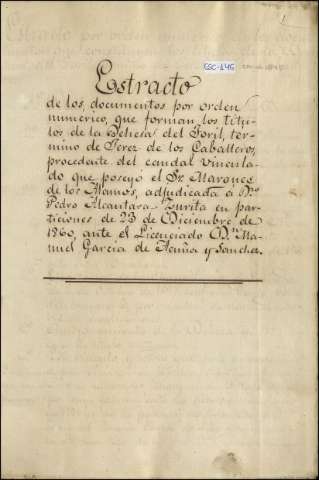 ESC-146
Estracto
de los documentos por orden
numerico, que forman los titu-
los de la Dehesa del Toril, ter-
mino de Jerez de los Caballeros,
procedente del caudal vincula-
do que poseyó el Sr. Marques
de los Alamos, adjudicada á Dn.
Pedro Alcantara Zurita en par-
ticiones de 23 de Diciembre de
1860, ante el Licenciado Dn. Ma-
nuel Garcia de Acuña y Sanchez.